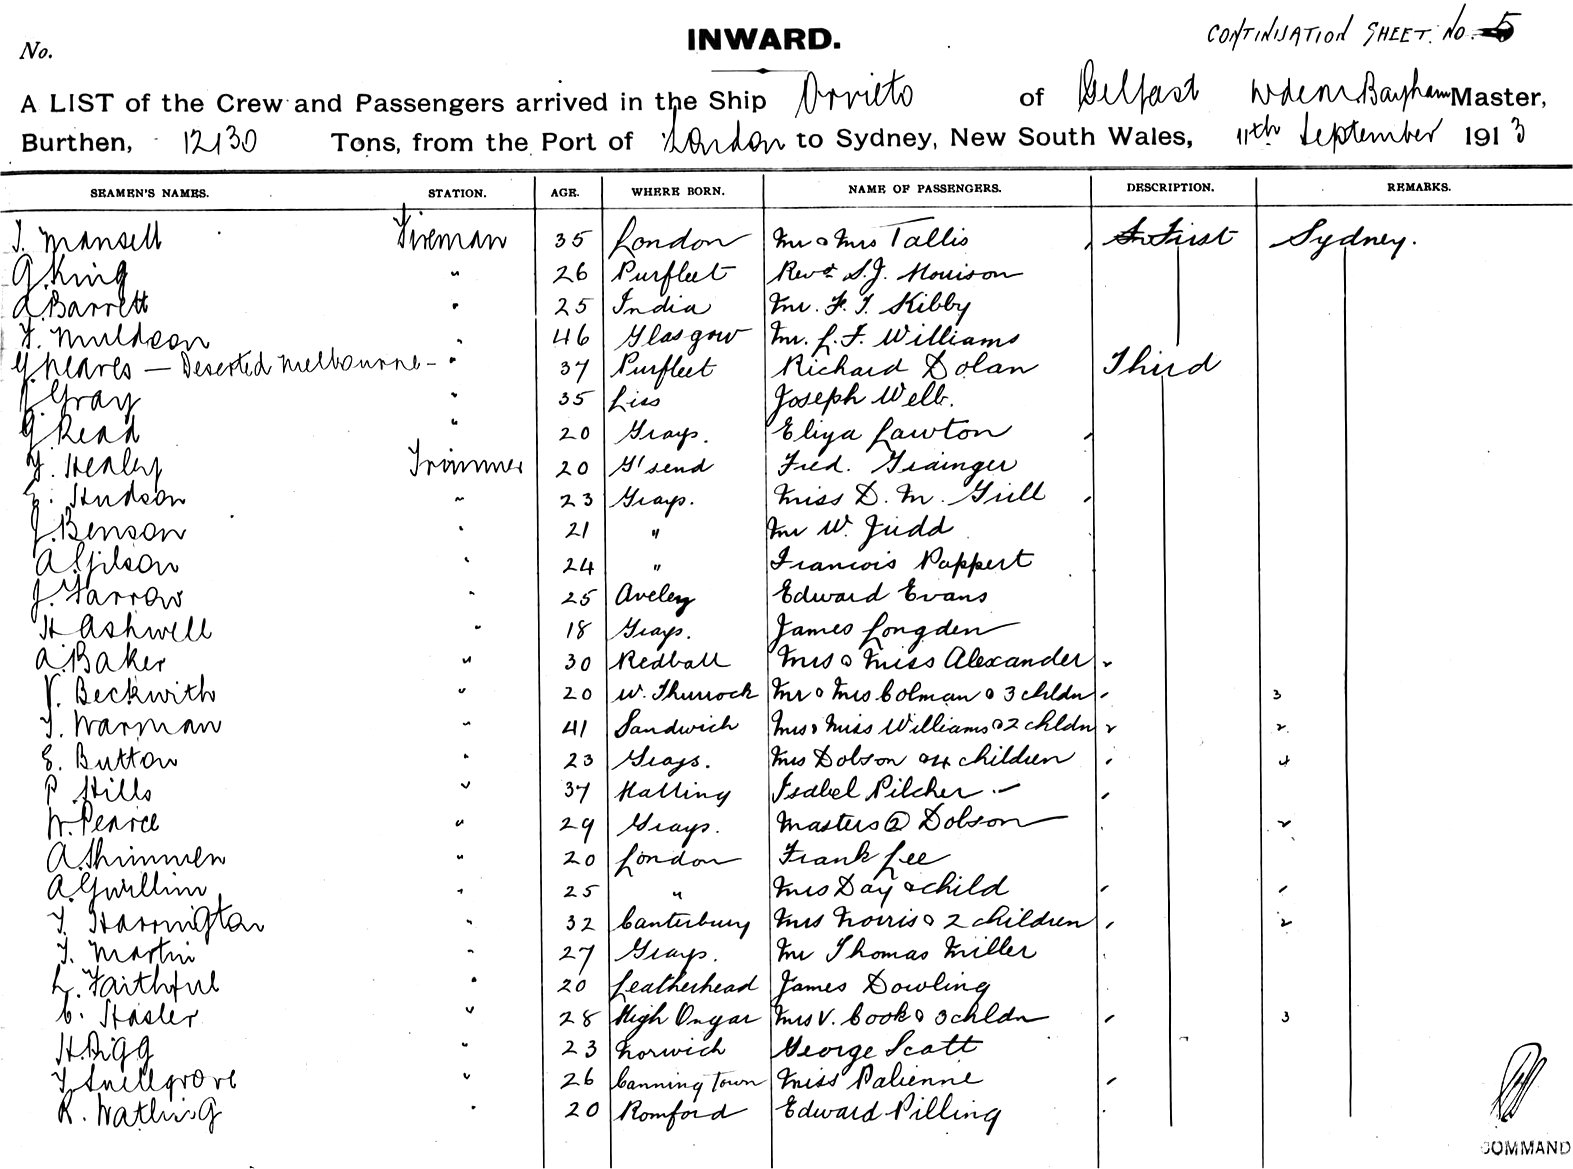 No.
INWARD.
CONTINUATION SHEET. No. 5
A LIST of the Crew and Passengers arrived in the Ship Orvieto of Belfast Master,
Burthen, 12130 Tons, from the Port of London to Sydney, New South Wales, 11th September 1913
SEAMEN'S NAMES. STATION. AGE. WHERE BORN. NAME OF PASSENGERS. DESCRIPTION. REMARKS.
T. Mansell Fireman 35 London Mr & Mrs Tallis First Sydney.
G. King " 26 Purfleet Revd. S. J. Houison
A. Barrett " 25 India Mr. F. T. Kibby
T. Muldoon " 46 Glasgow Mr. L. F. Williams
G. Neaves — Deserted Melbourne - " 37 Purfleet Richard Dolan Third
J. Gray " 35 Liss Joseph Webb.
G. Read " 20 Grays. Eliza Lawton
Healey Trimmer 20 G'send Fred. Grainger
E. Hudson " 23 Grays. Miss D. M. Gull
J. Benson " 21 " Mr W. Judd
A. Gilson " 24 " Francois Pappert
J. Farrow " 25 Aveley Edward Evans
H Ashwell " 18 Grays. James Longden
A. Baker " 30 Redball Mrs & Miss Alexander
V. Beckwith " 20 W. Thurrock Mr & Mrs Colman & 3 chldn 3
T. Warman " 41 Sandwich Mrs & Miss Williams & 2 chldn 2
E. Button " 23 Grays. Mrs Dobson & 4 children 4
P Hills " 37 Halling Isabel Pilcher
W. Pearce " 29 Grays. Masters (2) Dobson 2
A. Shimmen " 20 London Frank Lee
A. Gwillim " 25 " Mrs Day & child
T. Harrington " 32 Canterbury Mrs Norris & 2 children 2
T. Martin " 27 Grays. Mr Thomas Miller
L. Faithful " 20 Leatherhead James Dowling
C. Hasler " 28 High Ongar Mrs V. Cook & 3 chldn 3
H. Bigg " 23 Norwich George Scott
T. Snellgrove " 26 Canning Town Miss Palienne
R. Watling " 20 Romford Edward Pilling
COMMAND